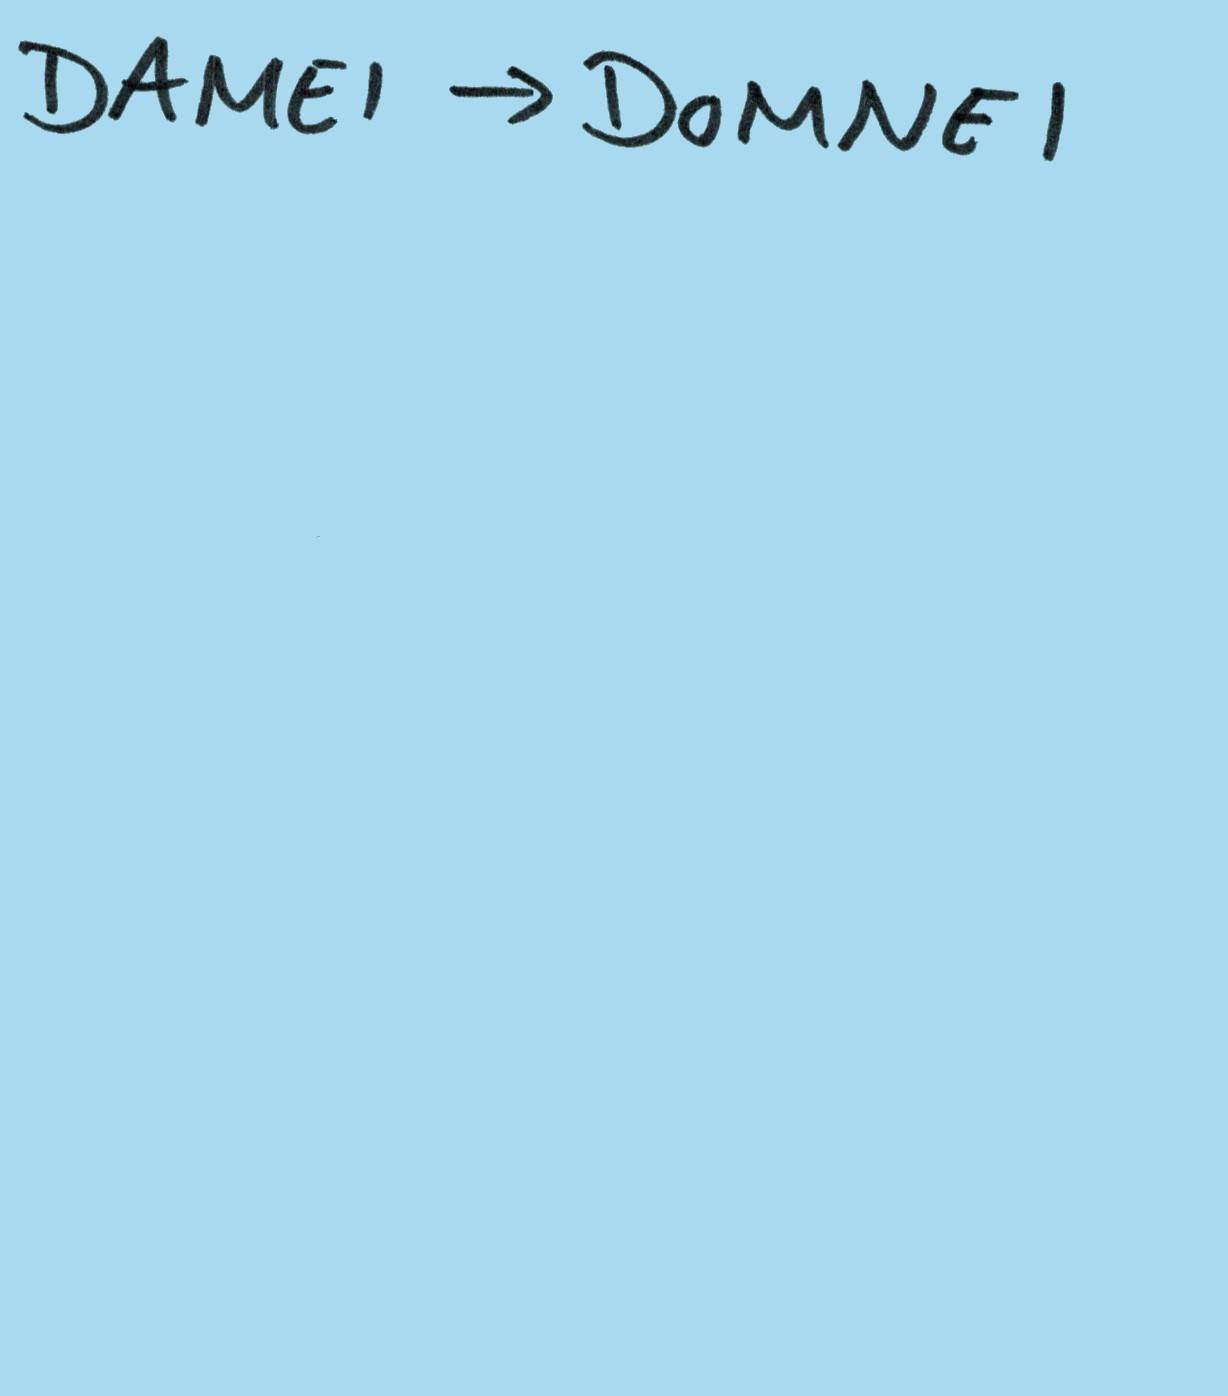 DAMEI → DOMNEI